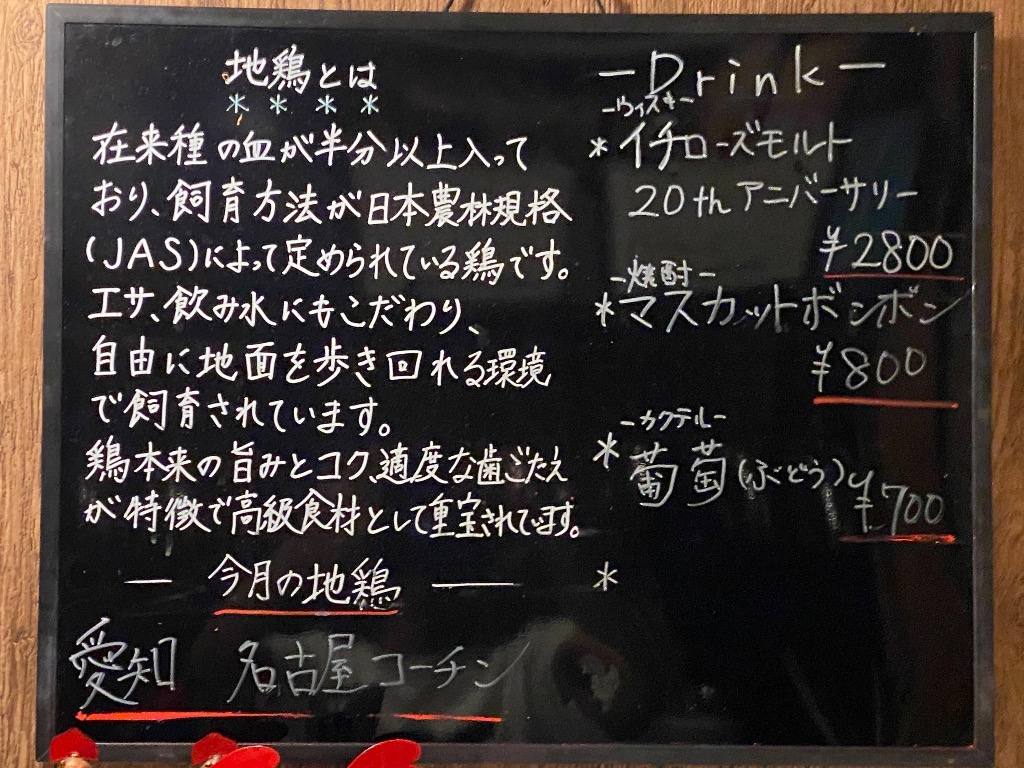 地鶏とは
＊＊＊＊
在来種の血が半分以上入って
おり、飼育方法が日本農林規格
(JAS)によって定められている鶏です。
エサ、飲み水にもこだわり、
自由に地面を歩き回れる環境
で飼育されています。
鶏本来の旨みとコク、適度な歯ごたえ
が特徴で高級食材として重宝されています。
― 今月の地鶏 ―
愛知 名古屋コーチン
－Drink－
－ウィスキー－
＊イチローズモルト
20thアニバーサリー
¥2800
－焼酎－
＊マスカットボンボン
¥800
－カクテル－
＊葡萄(ぶどう)
¥700
＊